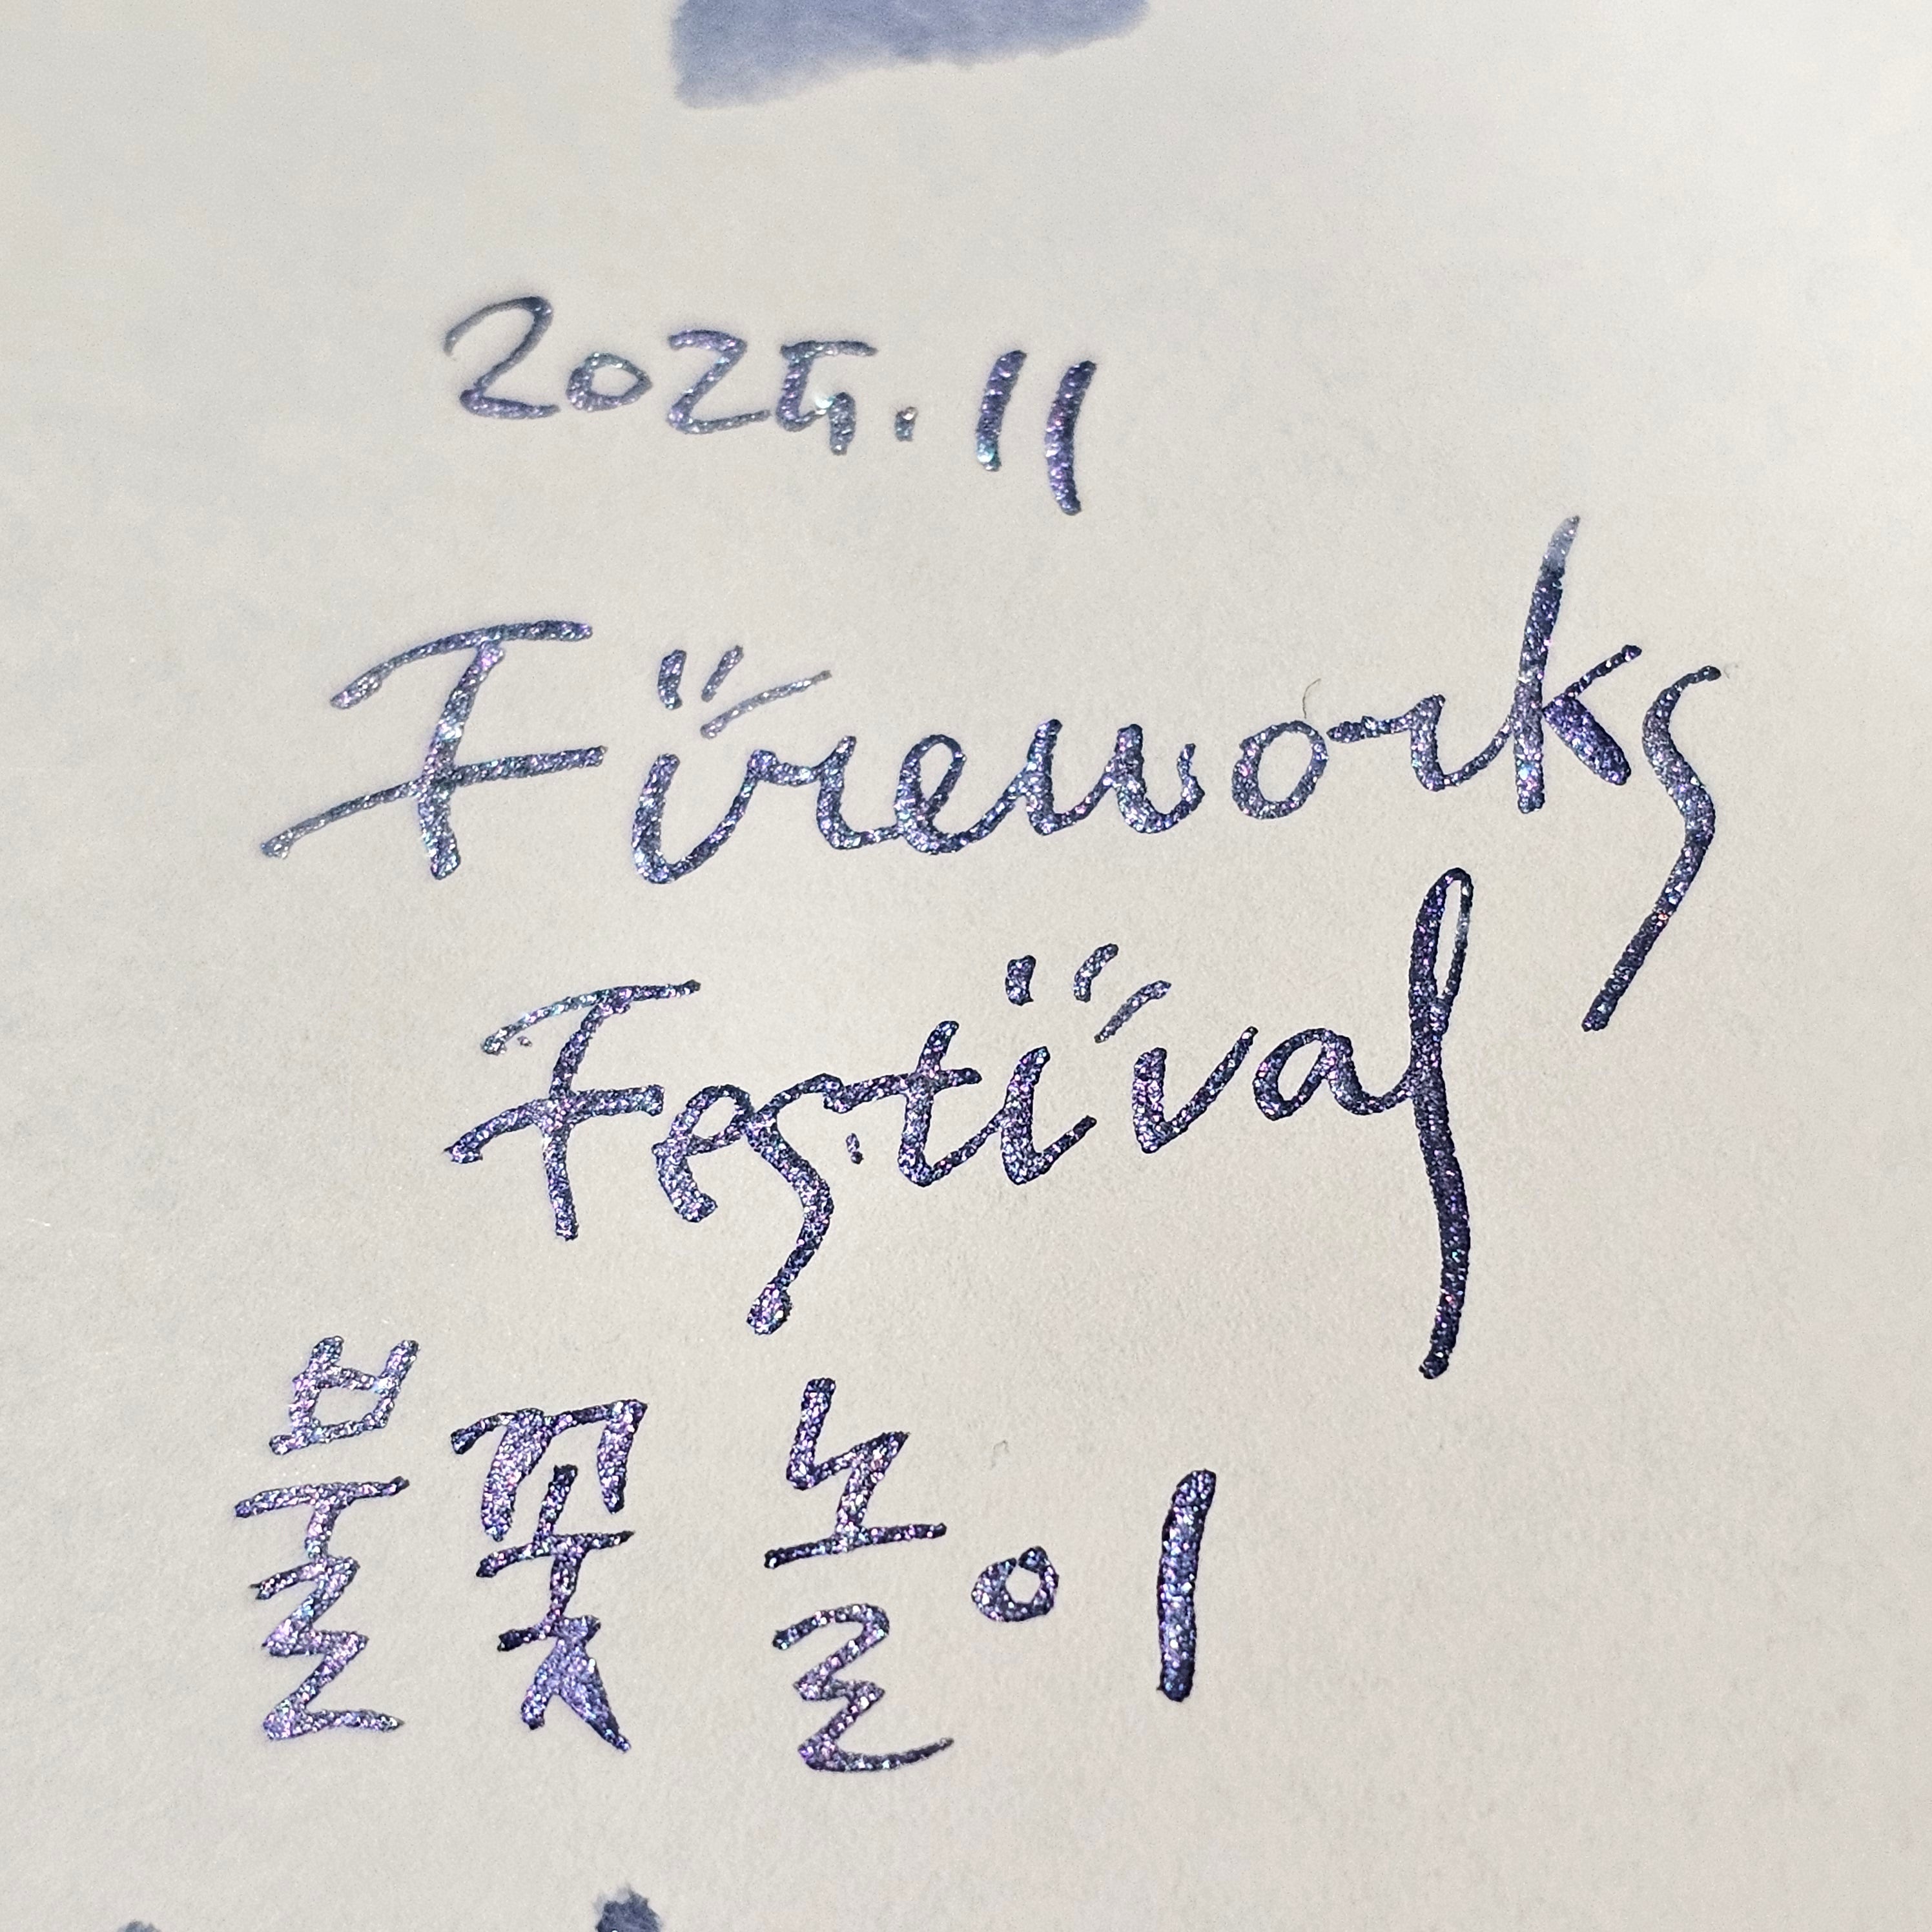 2025.11
Fireworks
Festival
불꽃놀이